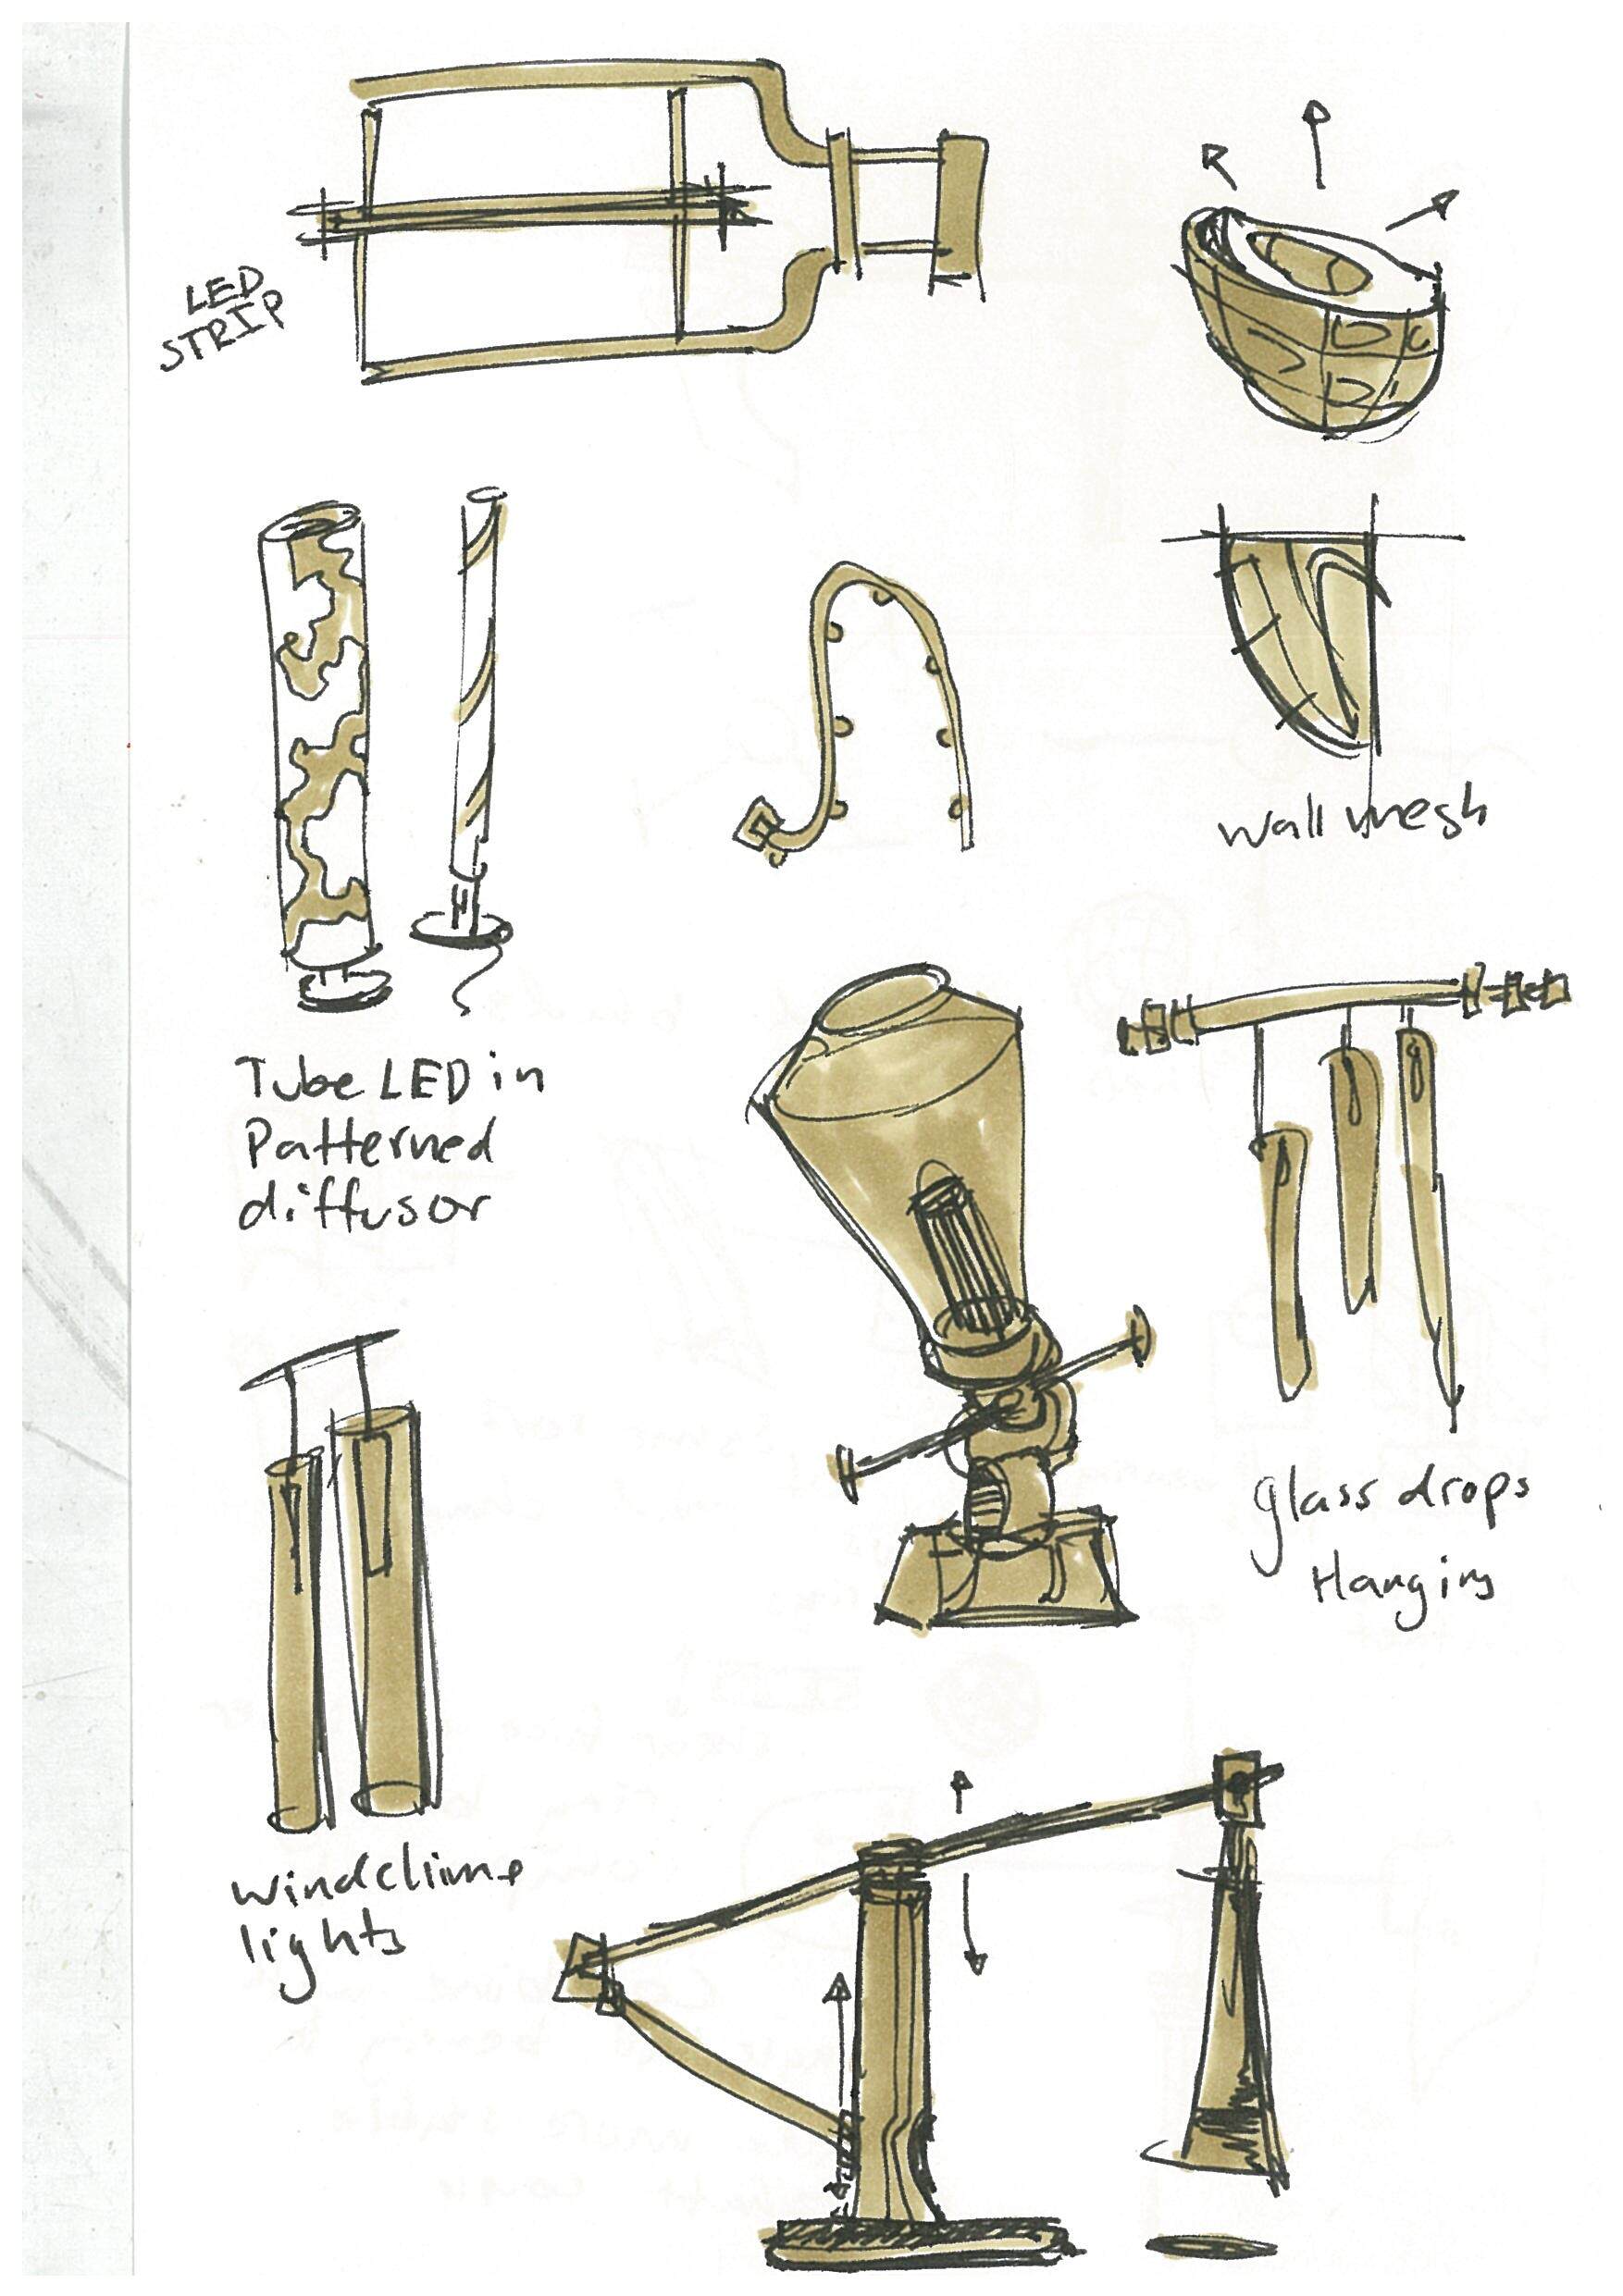 LED
STRIP
wall mesh
Tube LED in
Patterned
diffusor
glass drops
Hanging
windchime
lights